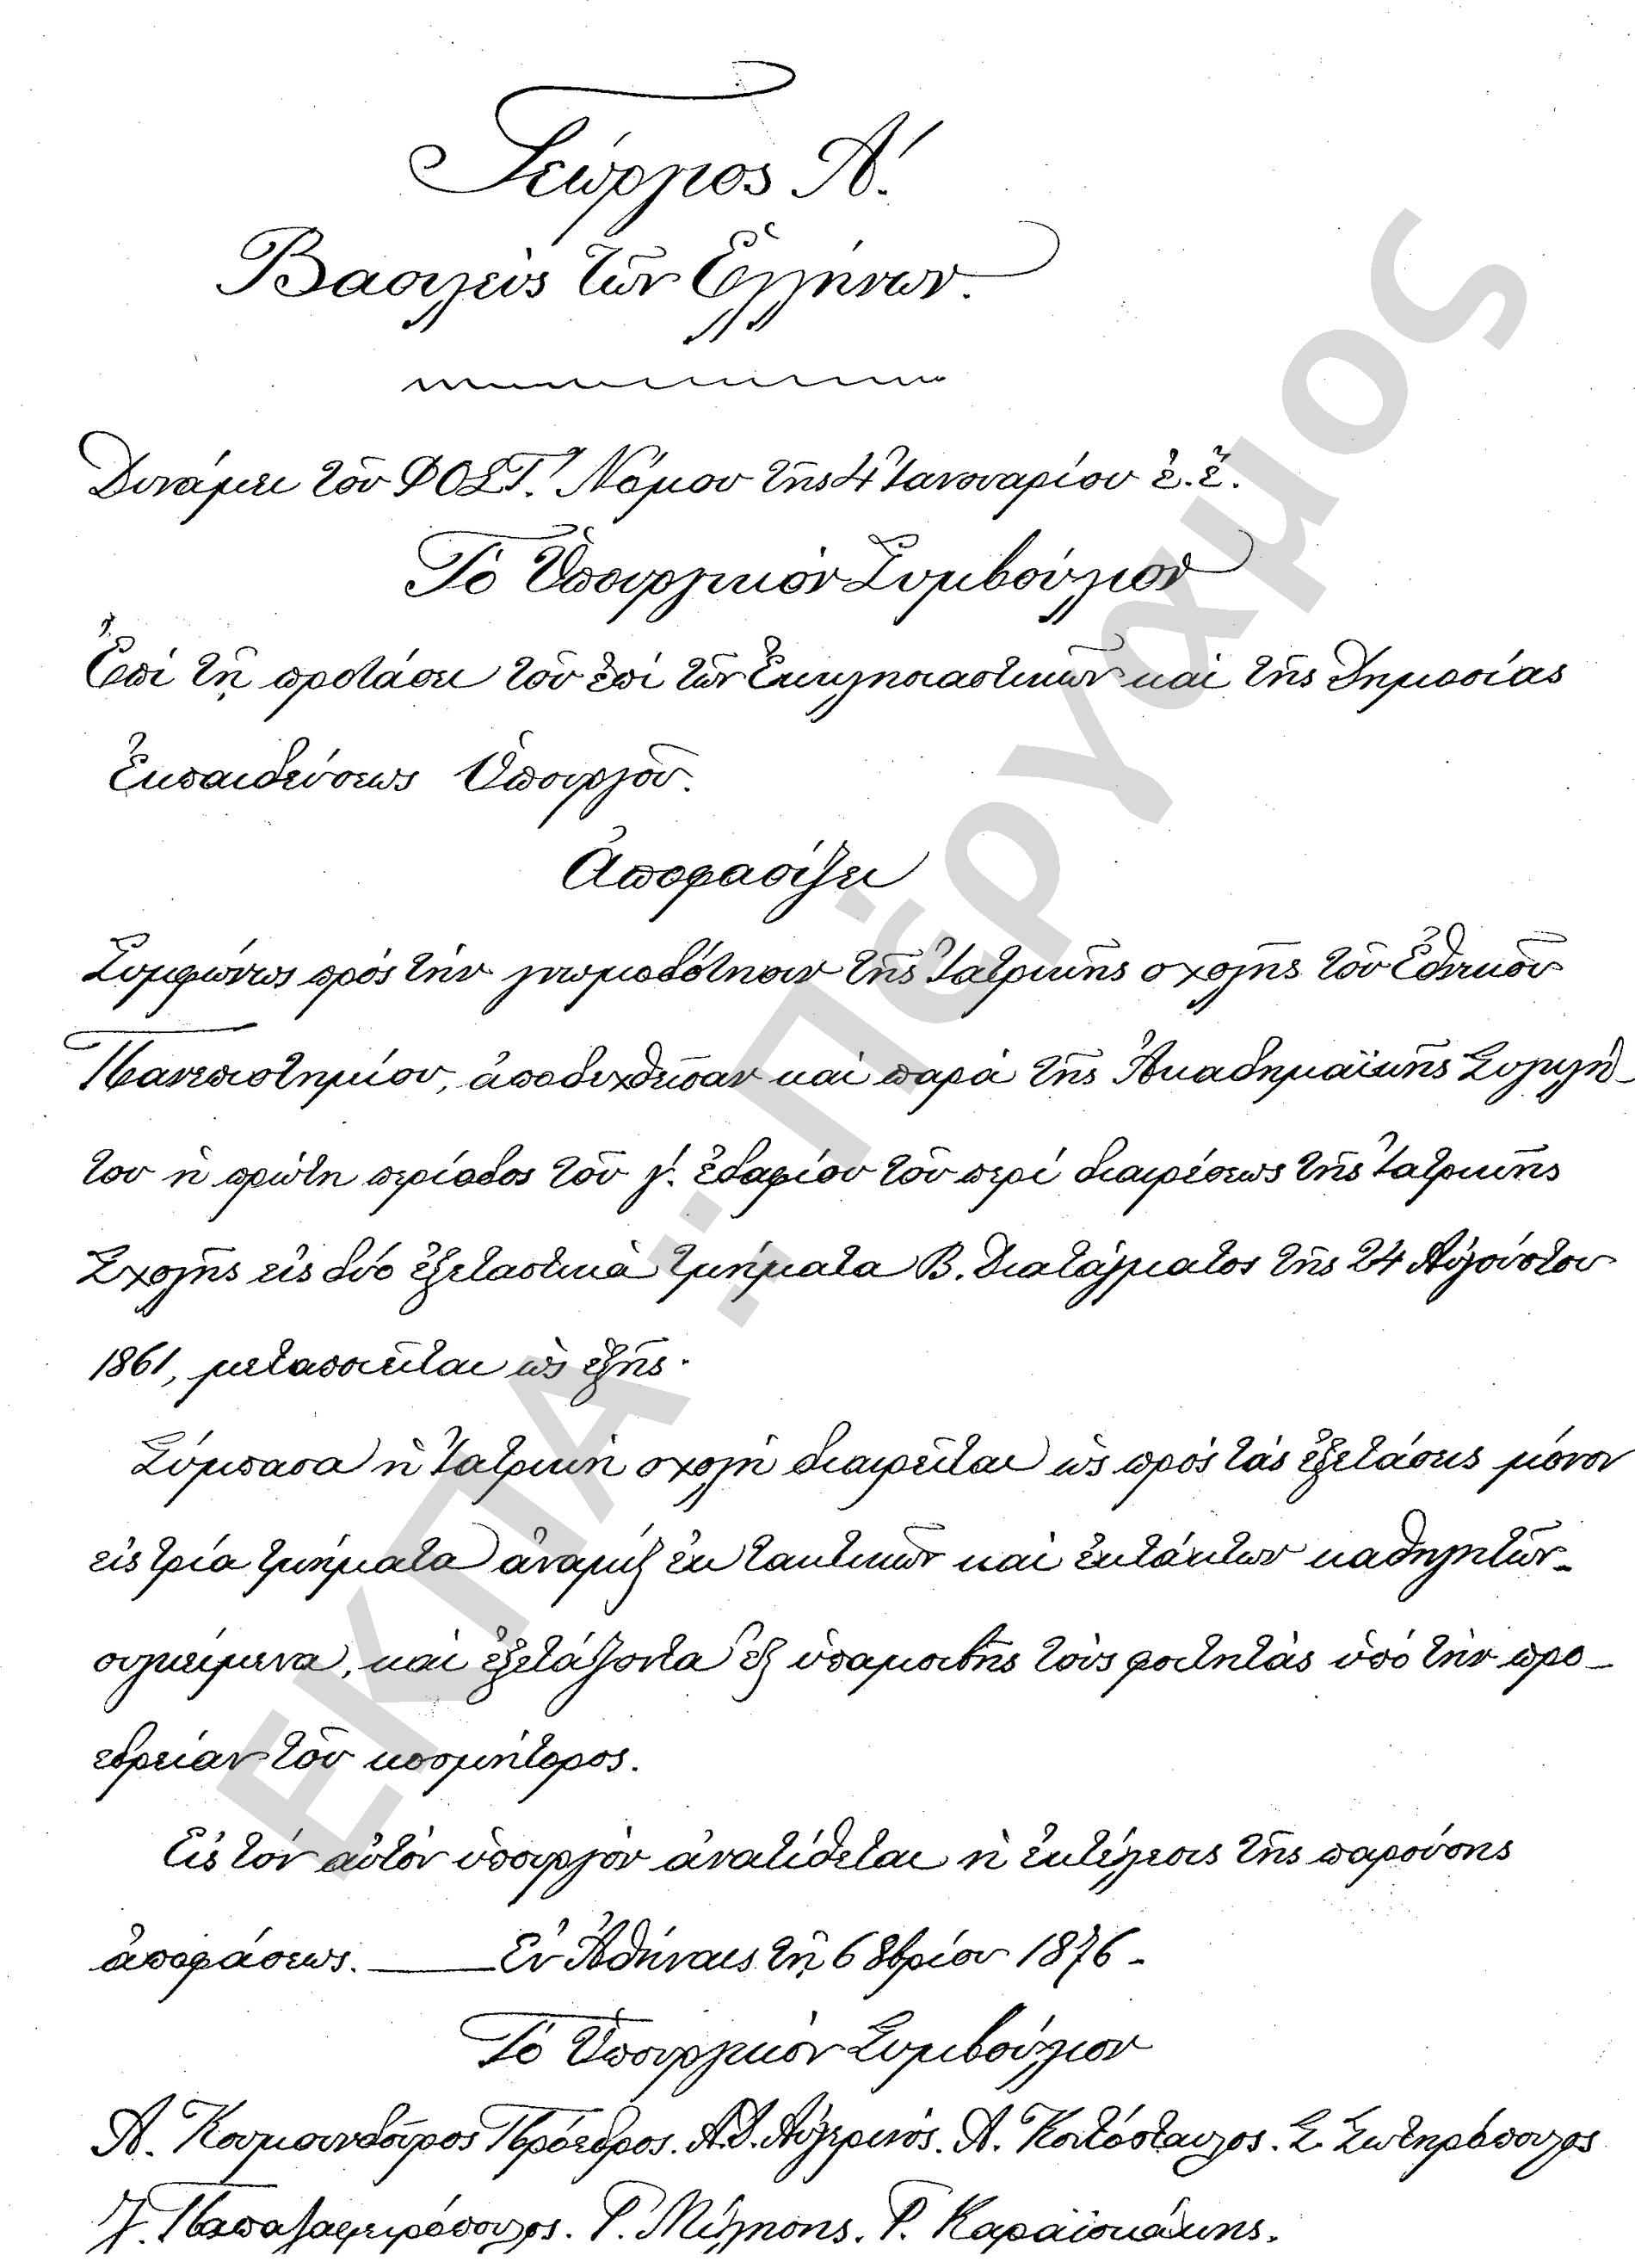 Γεώργιος Α'.
Βασιλεὺς τῶν Ἑλλήνων.
Δυνάμει τοῦ ΦΟΣΤ'. Νόμου τῆς 4 Ἰανουαρίου ἐ.ἔ.
Τὸ Ὑπουργικὸν Συμβούλιον
Ἐπὶ τῇ προτάσει τοῦ ἐπὶ τῶν Ἐκκλησιαστικῶν καὶ τῆς Δημοσίας
Ἐκπαιδεύσεως Ὑπουργοῦ.
Ἀποφασίζει
Συμφώνως πρὸς τὴν γνωμοδότησιν τῆς Ἰατρικῆς σχολῆς τοῦ Ἐθνικοῦ
Πανεπιστημίου, ἀποδεχθεῖσαν καὶ παρὰ τῆς Ἀκαδημαϊκῆς Συγκλή-
του ἡ πρώτη περίοδος τοῦ γ'. ἐδαφίου τοῦ περὶ διαιρέσεως τῆς Ἰατρικῆς
Σχολῆς εἰς δύο ἐξεταστικὰ τμήματα Β. Διατάγματος τῆς 24 Αὐγούστου
1861, μεταποιεῖται ὡς ἑξῆς·
Σύμπασα ἡ Ἰατρικὴ σχολὴ διαιρεῖται ὡς πρὸς τὰς ἐξετάσεις μόνον
εἰς τρία τμήματα ἀναμὶξ ἐκ τακτικῶν καὶ ἐκτάκτων καθηγητῶν
συγκείμενα, καὶ ἐξετάζοντα ἐξ ὑπαμοιβῆς τοὺς φοιτητὰς ὑπὸ τὴν προ-
εδρείαν τοῦ κοσμήτορος.
Εἰς τὸν αὐτὸν ὑπουργὸν ἀνατίθεται ἡ ἐκτέλεσις τῆς παρούσης
ἀποφάσεως. — Ἐν Ἀθήναις τῇ 6 8βρίου 1876 -
Τὸ Ὑπουργικὸν Συμβούλιον
Α. Κουμουνδοῦρος Πρόεδρος. Α.Δ. Αὐγερινός. Α. Κοντόσταυλος. Σ. Σωτηρόπουλος
Γ. Παπαζαφειρόπουλος. Ρ. Μίλησης. Γ. Καραϊσκάκης.
ΕΚΠΑ : Πέργαμος